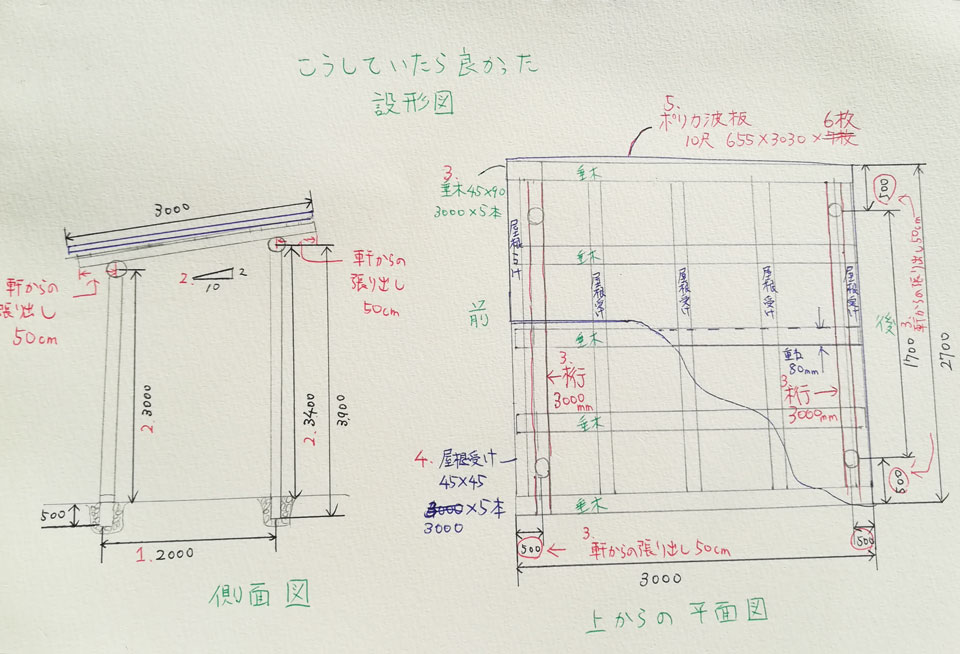 こうしていたら良かった
設形図
5.
ポリカ波板 6枚
10尺 655×3030×7枚
3.
垂木45×90
3000×5本
垂木
500
3.軒からの張り出し50cm
3000
軒からの
張り出し
50cm
2. 2
10
軒からの
張り出し
50cm
屋根うけ
屋根受け
屋根受け
屋根受け
屋根受け
垂木
前
後
1700
2700
垂木
重ね
80mm
3.
桁行
3000mm
3.
桁行
3000mm
垂木
2.3000
2.3400
3900
4. 屋根受け
45×45
3000×5本
3000
垂木
500
500
1.2000
500
3.
軒からの張り出し50cm
500
3000
側面図
上からの平面図